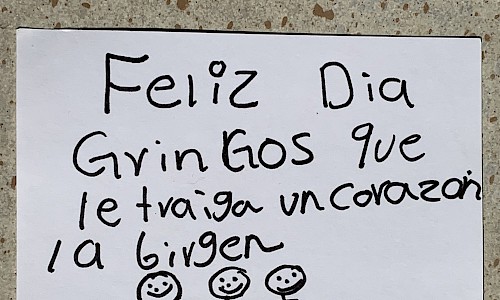 Feliz Dia
GrinGos que
le traiga un corazon
la birgen